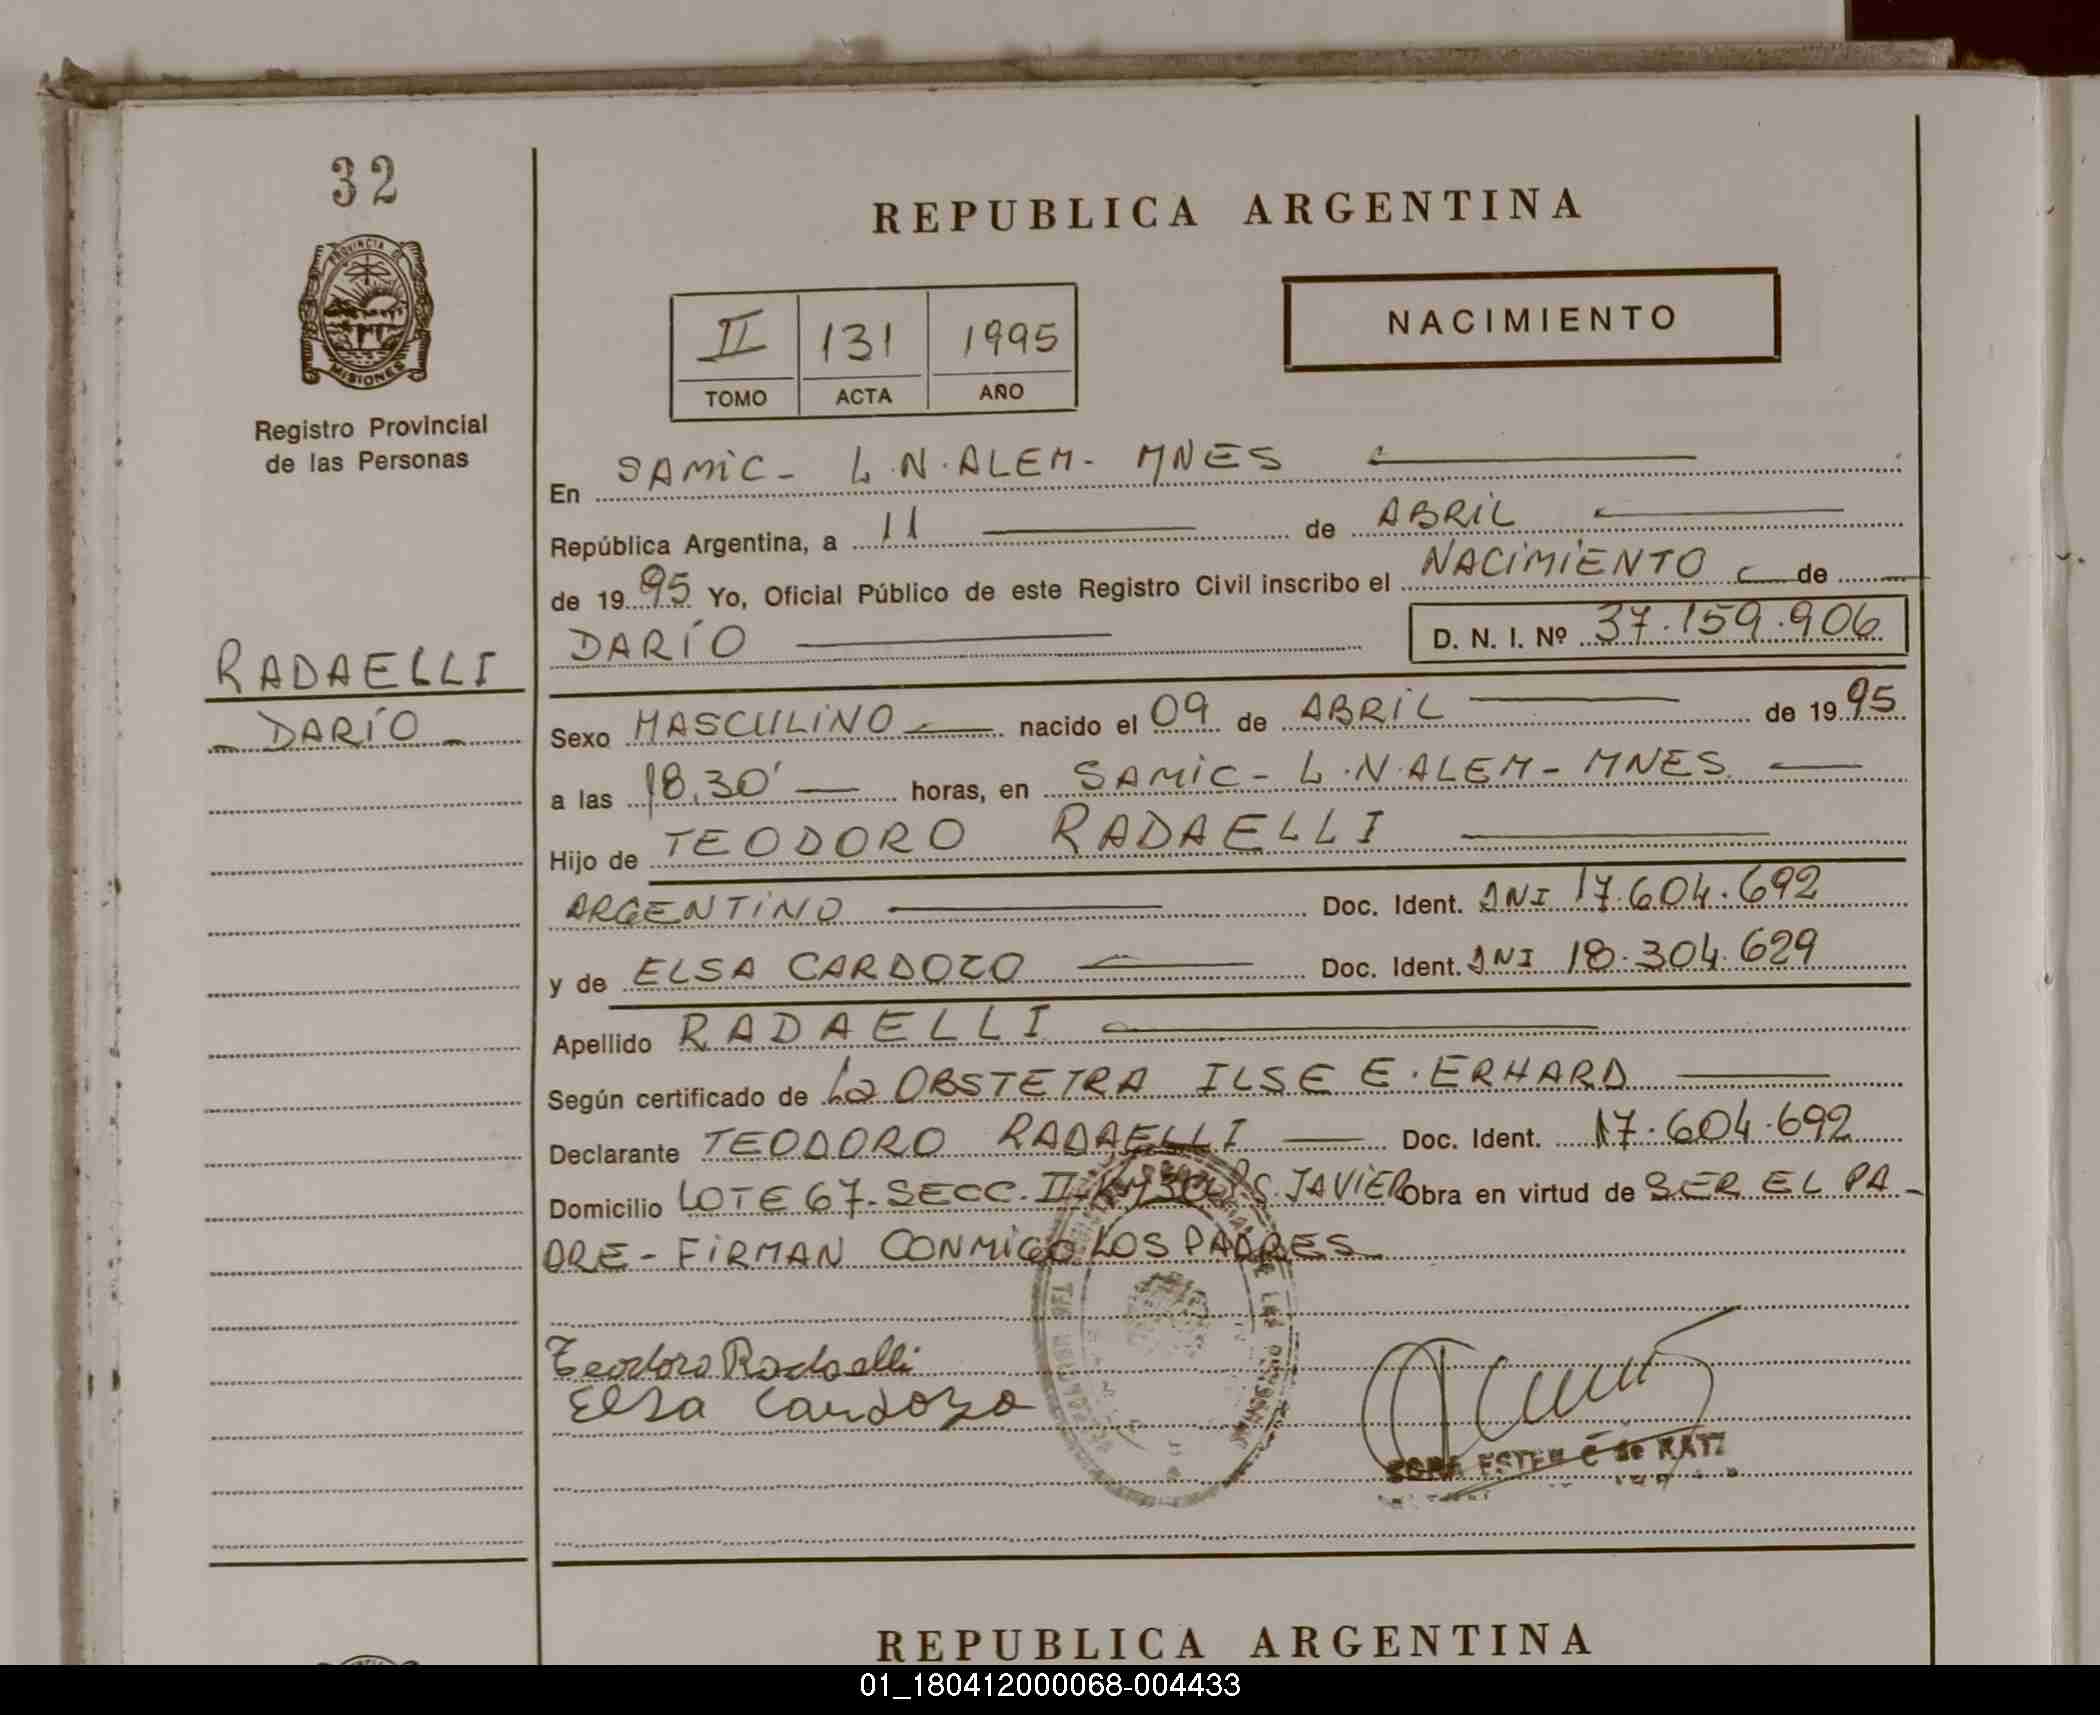 32
REPUBLICA ARGENTINA
PROVINCIA DE
MISIONES
II 131 1995
TOMO ACTA AÑO
NACIMIENTO
Registro Provincial
de las Personas
En SAMIC - L.N.ALEM - MNES
República Argentina, a 11 de ABRIL
de 1995 Yo, Oficial Público de este Registro Civil inscribo el NACIMIENTO de
DARÍO D. N. I. Nº 37.159.906
RADAELLI
- DARÍO -
Sexo MASCULINO nacido el 09 de ABRIL de 1995
a las 18,30' horas, en SAMIC - L.N.ALEM - MNES
Hijo de TEODORO RADAELLI
ARGENTINO Doc. Ident. DNI 17.604.692
y de ELSA CARDOZO Doc. Ident. DNI 18.304.629
Apellido RADAELLI
Según certificado de La OBSTETRA ILSE E. ERHARD
Declarante TEODORO RADAELLI Doc. Ident. 17.604.692
Domicilio LOTE 67- SECC. II- S. JAVIER Obra en virtud de SER EL PA-
DRE - FIRMAN CONMIGO LOS PADRES
Teodoro Radaelli
Elsa Cardozo
ESTER C de RATZ
REPUBLICA ARGENTINA
01_180412000068-004433